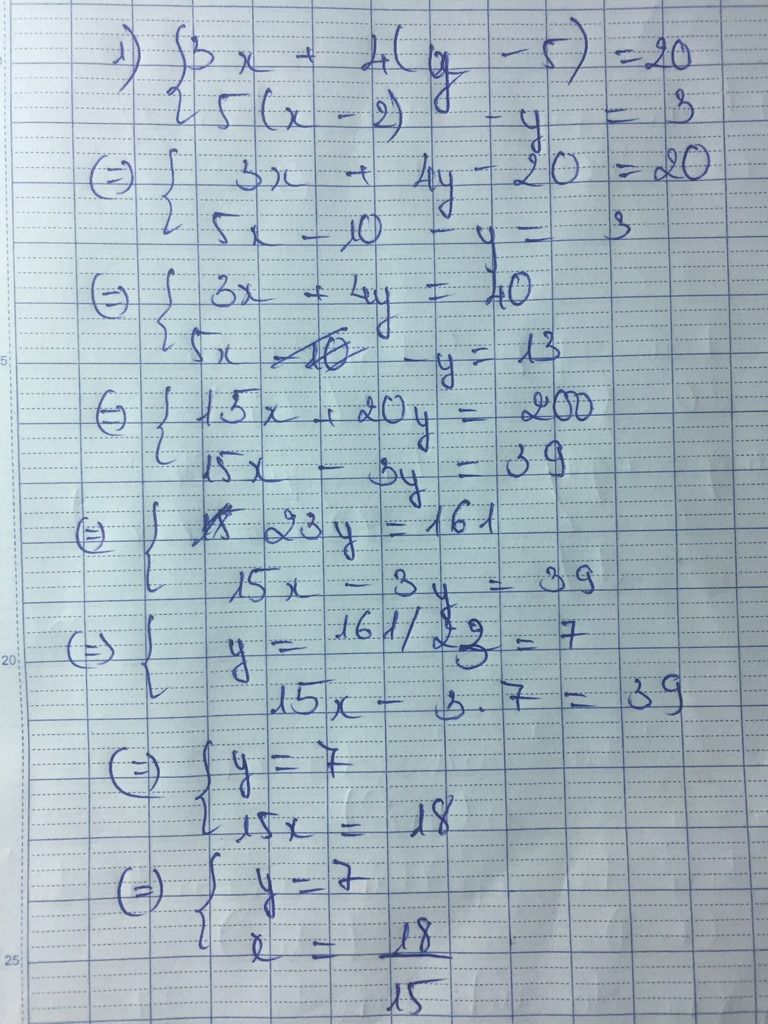 1) { 3x + 4(y - 5) = 20
5(x - 2) - y = 3
(=) { 3x + 4y - 20 = 20
5x - 10 - y = 3
(=) { 3x + 4y = 40
5x - 10 - y = 13
(=) { 15x + 20y = 200
15x - 3y = 39
(=) { 15 23y = 161
15x - 3y = 39
(=) { y = 161/23 = 7
20
15x - 3.7 = 39
(=) { y = 7
15x = 18
(=) { y = 7
x = 18
25
15